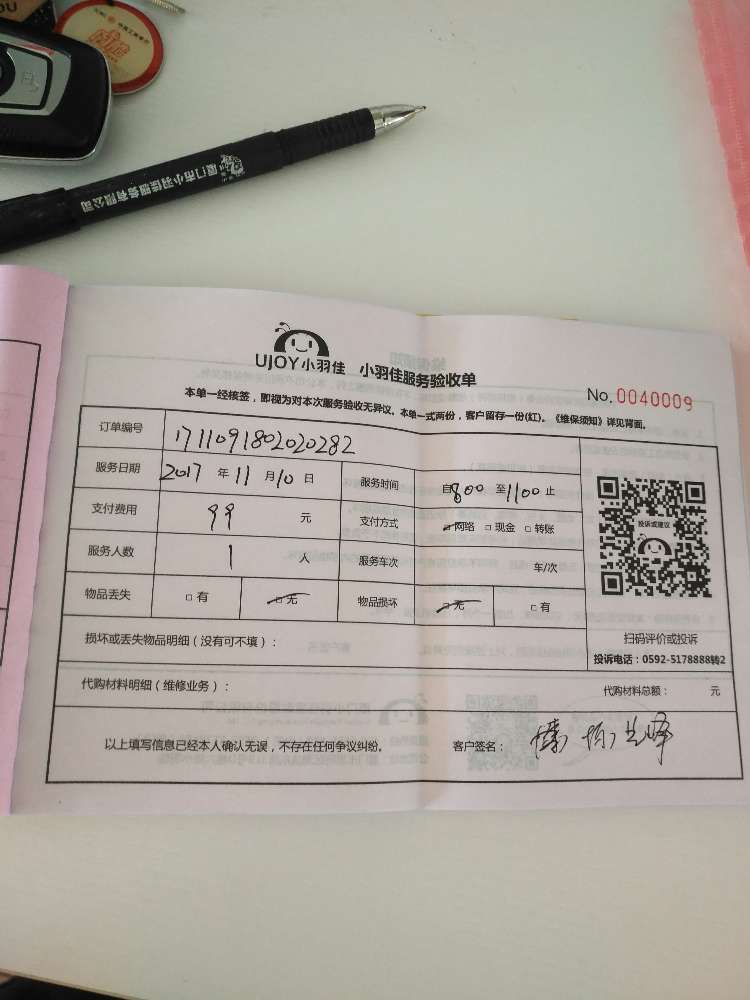 厦门市小羽佳服务有限公司
UJOY小羽佳 小羽佳服务验收单
No.0040009
本单一经核签，即视为对本次服务验收无异议。本单一式两份，客户留存一份(红)。《维保须知》详见背面。
订单编号 1711091802020282
服务日期 2017 年 11 月 10 日 服务时间 自 800 至 1100 止
支付费用 99 元 支付方式 网络 □ 现金 □ 转账
服务人数 1 人 服务车次 车/次
物品丢失 □ 有 □ 无 物品损坏 □ 无 □ 有
投诉或建议
扫码评价或投诉
投诉电话：0592-5178888转2
损坏或丢失物品明细（没有可不填）：
代购材料明细（维修业务）： 代购材料总额： 元
以上填写信息已经本人确认无误，不存在任何争议纠纷。 客户签名：